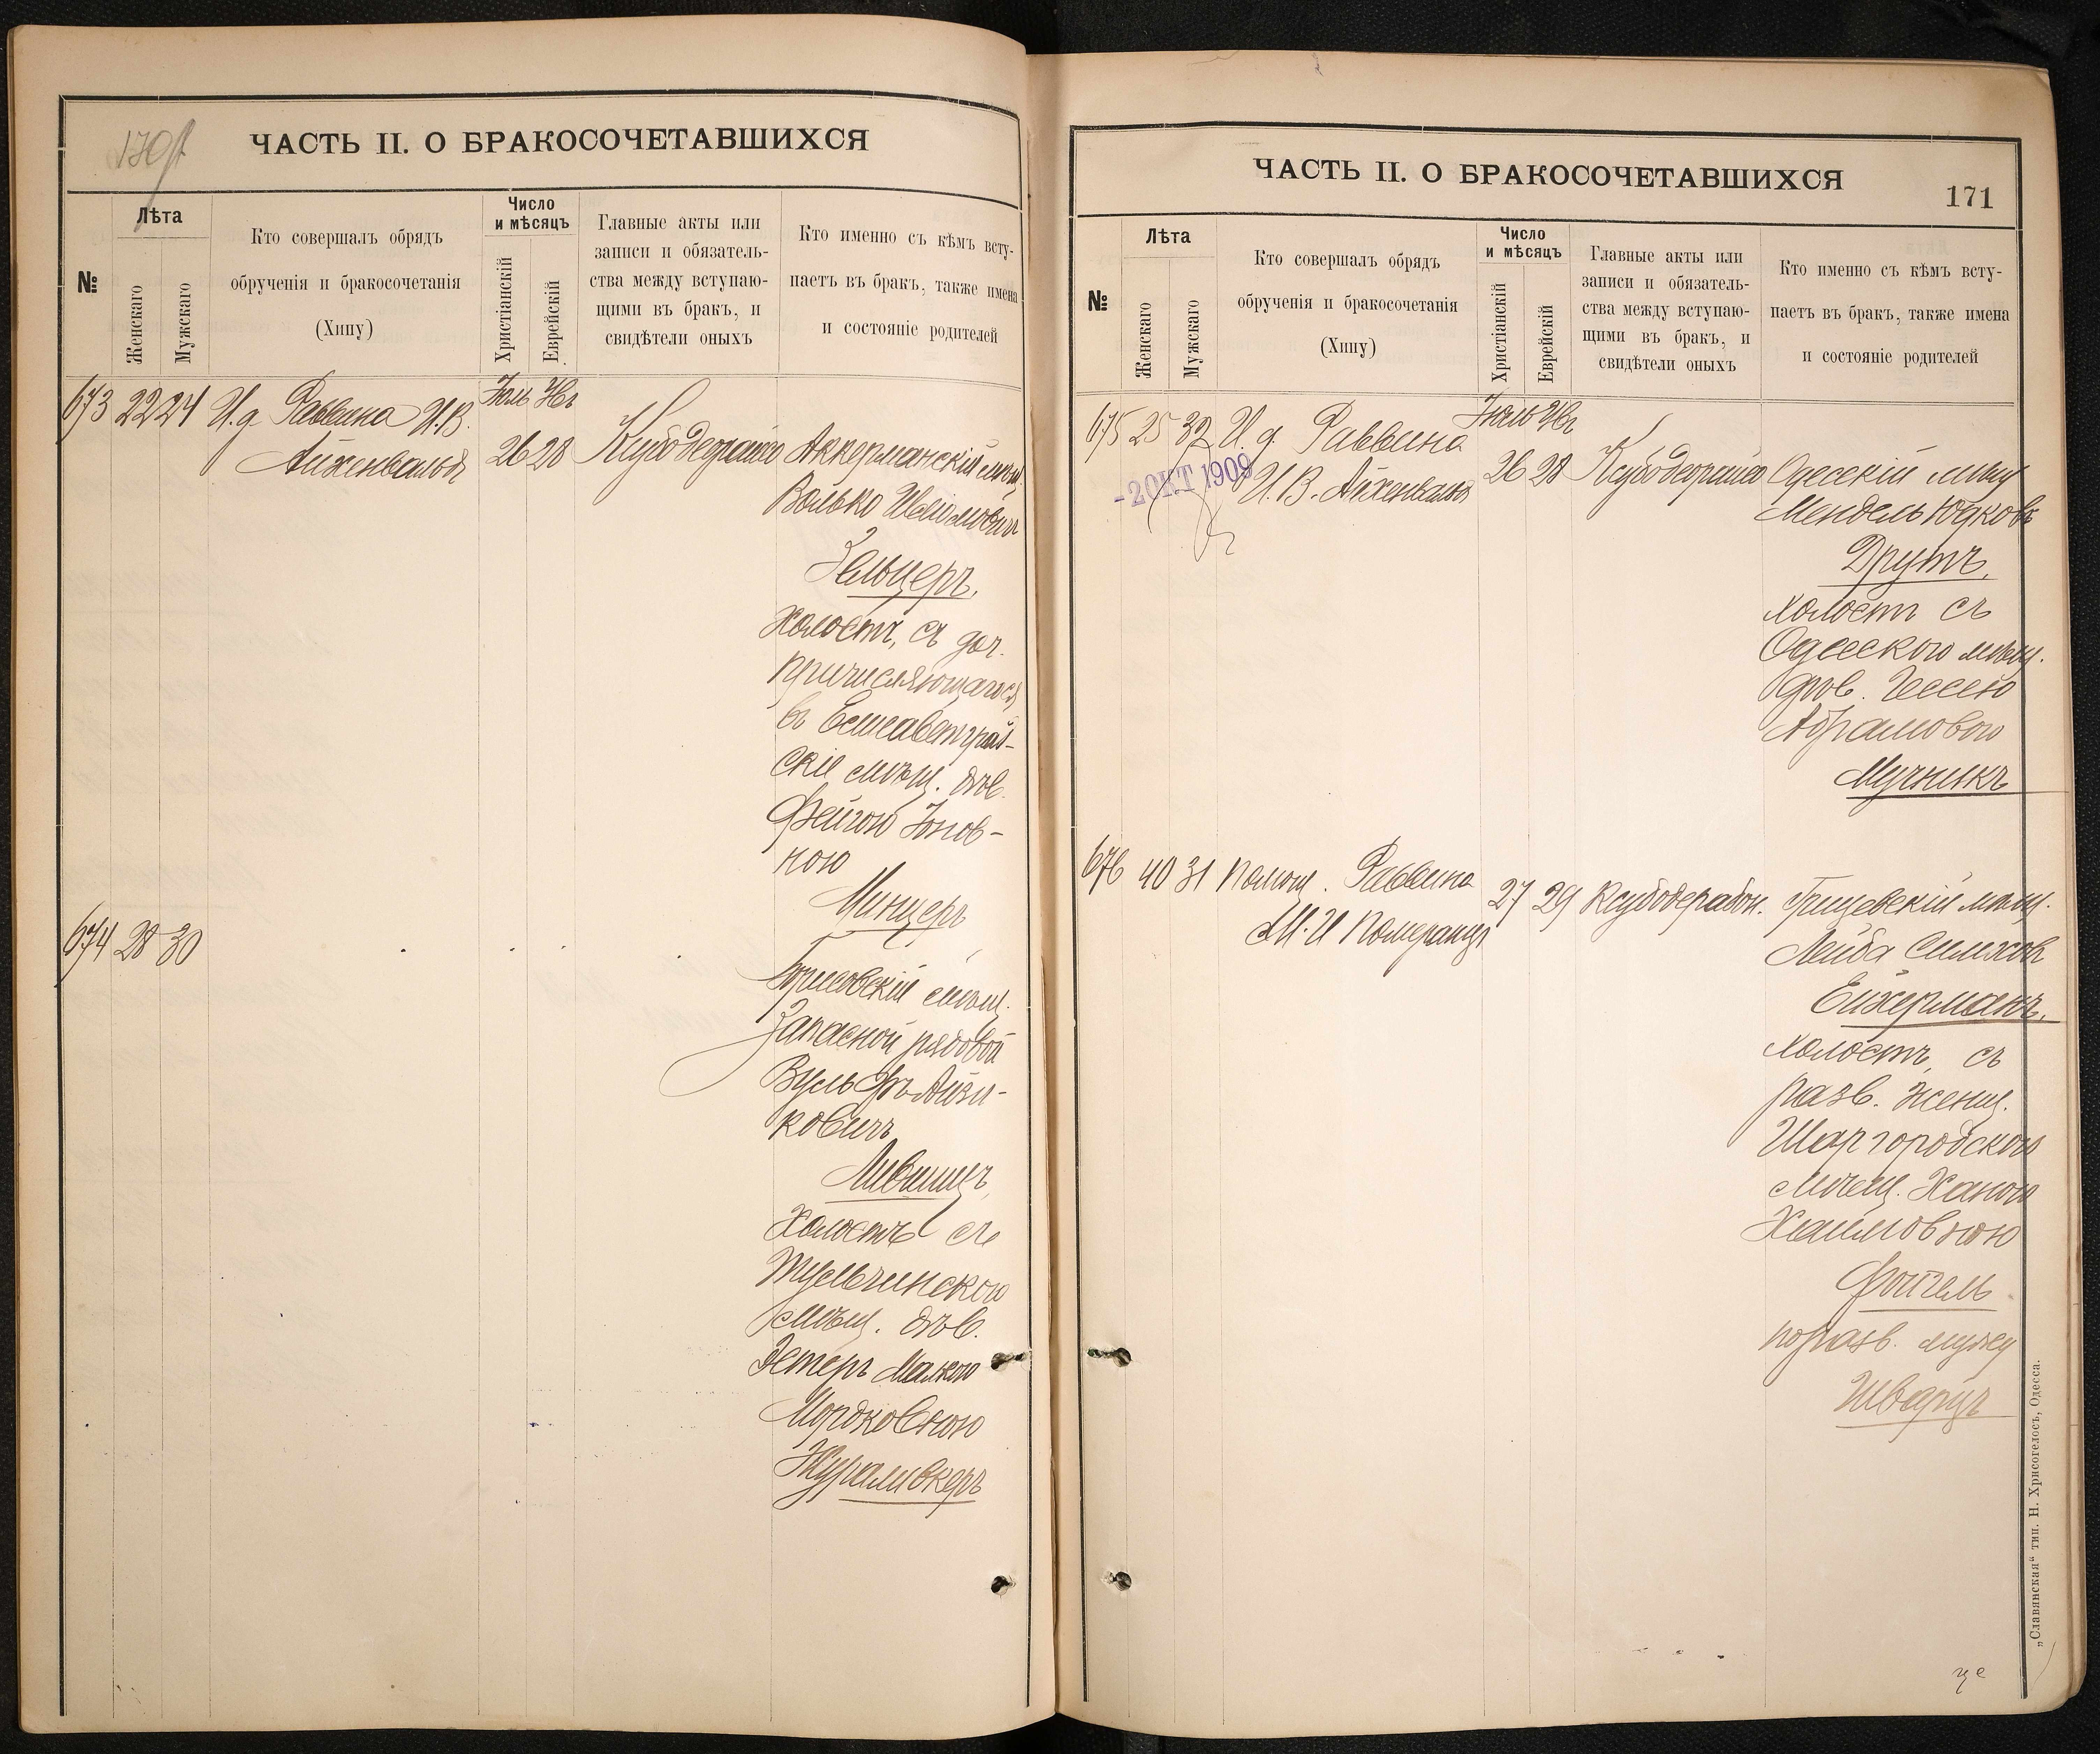 ЧАСТЬ II. О БРАКОСОЧЕТАВШИХСЯ
№
Лѣта
Женскаго
Мужскаго
Кто совершалъ обрядъ
обрученія и бракосочетанія
(Хипу)
Число
и мѣсяцъ
Христіанскій
Еврейскій
Главные акты или
записи и обязатель-
ства между вступаю-
щими въ бракъ, и
свидѣтели оныхъ
Кто именно съ кѣмъ всту-
паетъ въ бракъ, также имена
и состояніе родителей
673 22 24 И.д. Раввина И.В.
Айхенвальдъ
Іюль
26 28
Аккерманскій мѣщ.
Волько
Зельцеръ,
Холостъ, съ доч.
причисляющагося
въ Елисаветград-
скіе мѣщ. дѣв.
Фейгою Іонов-
ною
Минцеръ
674 28 30
Борисовскій мѣщ.
Запасной рядовой
Вульфъ Айзи-
ковичъ
Лившицъ,
Холостъ съ
Тульчинскою
мѣщ. дѣв.
Эстеръ Малкою
Мордковною
Журавивкеръ
ЧАСТЬ II. О БРАКОСОЧЕТАВШИХСЯ
171
№
Лѣта
Женскаго
Мужскаго
Кто совершалъ обрядъ
обрученія и бракосочетанія
(Хипу)
Число
и мѣсяцъ
Христіанскій
Еврейскій
Главные акты или
записи и обязатель-
ства между вступаю-
щими въ бракъ, и
свидѣтели оныхъ
Кто именно съ кѣмъ всту-
паетъ въ бракъ, также имена
и состояніе родителей
675 25 32 И.д. Раввина
И.В. Айхенвальдъ
-2 ОКТ 1909
Іюль
26 28
Одесскій мѣщ
Мендель Юдковъ
Друтъ,
холостъ съ
Одесскою мѣщ.
дѣв. Гессею
Абрамовою
Мучникъ
676 40 31 Помощ. Раввина
М.И Померанцъ
27 29
мѣщ.
Лейба Симхов
Ейхерманъ,
холостъ, съ
разв. женщ.
Шаргородскою
мѣщ. Ханою
Хаимовною
Фойгель
по разв. мужу
Шварцъ
„Славянская“ тип. Н. Хрисогелосъ, Одесса.